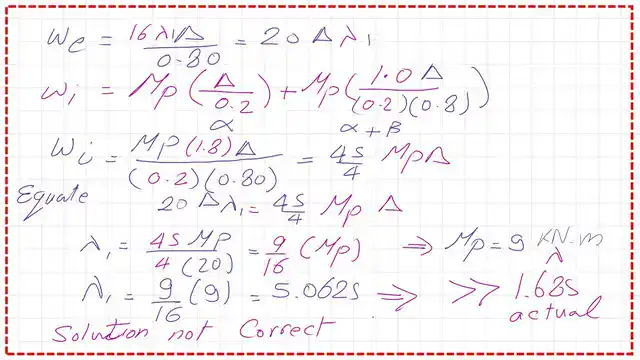 We = 16λ₁Δ / 0.80 = 20 Δ λ₁
Wi = Mp (Δ / 0.2) + Mp (1.0 Δ / (0.2)(0.8))
α α + β
Wi = MP (1.8) Δ / (0.2)(0.80) = 45/4 MpΔ
Equate 20 Δ λ₁ = 45/4 Mp Δ
λ₁ = 45 MP / 4 (20) = 9/16 (Mp) ⇒ Mp = 9 KN-m
λ
λ₁ = 9/16 (9) = 5.0625 ⇒ >> 1.685
actual
Solution not Correct